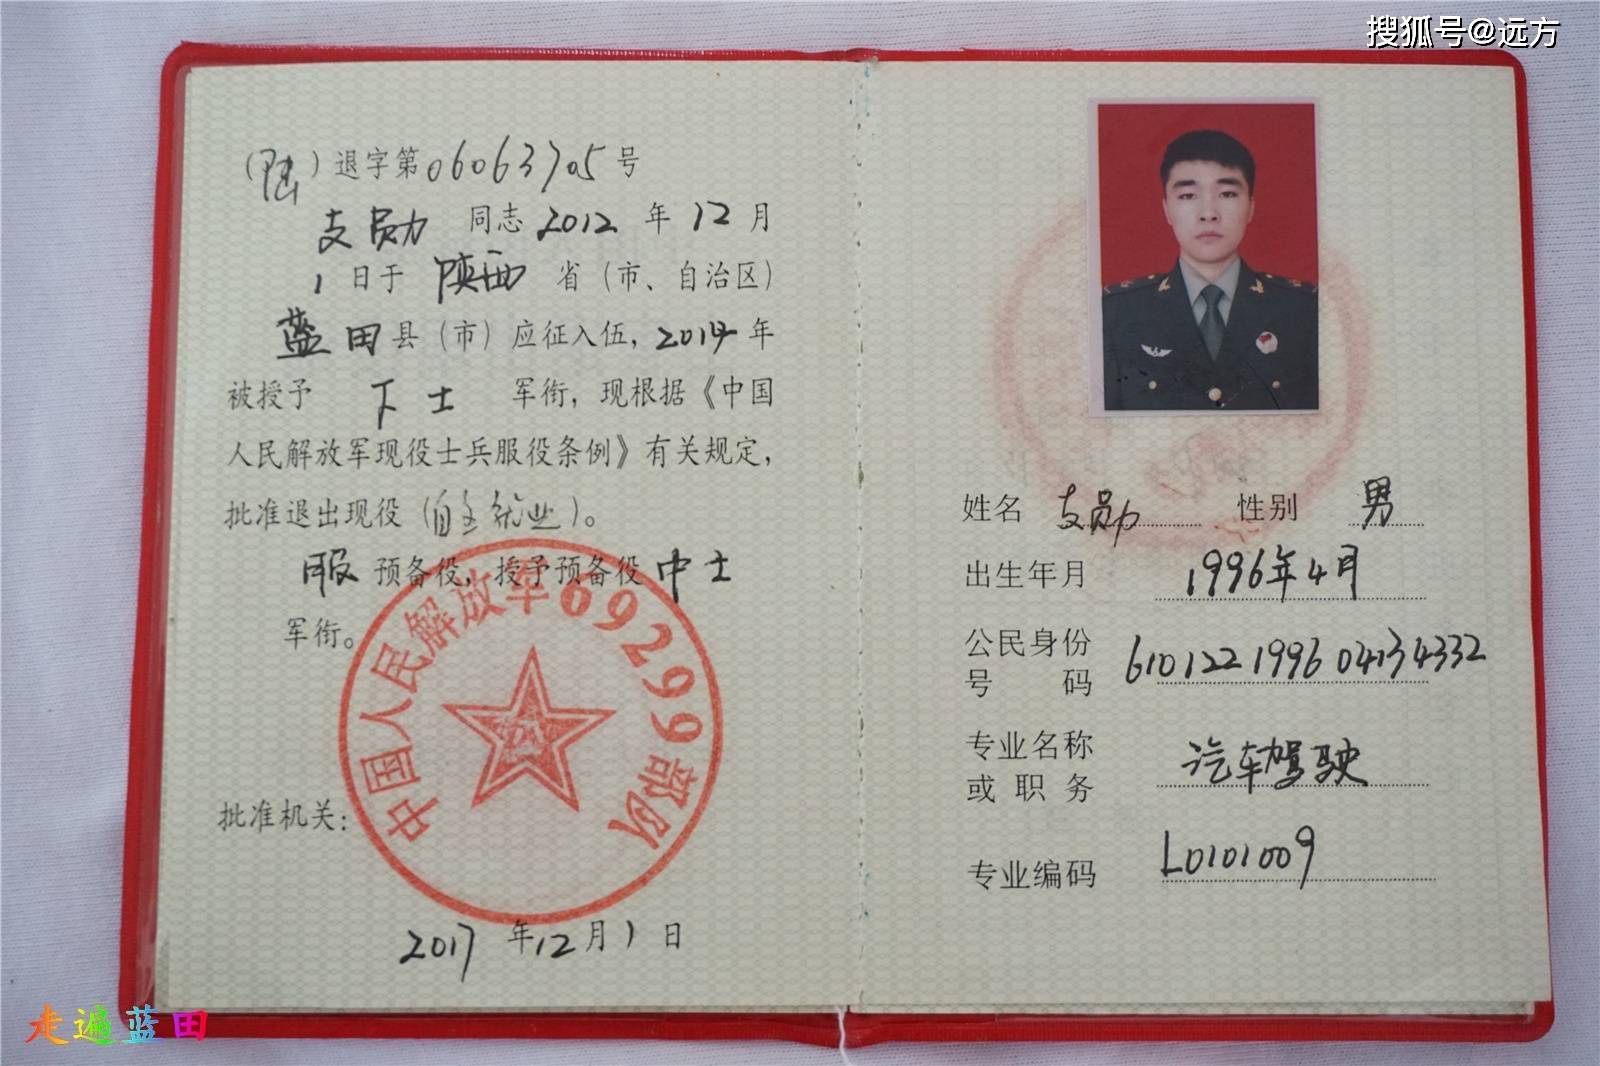 搜狐号@远方
(陆)退字第06063705号
支勋 同志2012年12月
1日于 陕西 省(市、自治区)
蓝田县(市)应征入伍,2014年
被授予 下士 军衔,现根据《中国
人民解放军现役士兵服役条例》有关规定,
批准退出现役(自主就业)。
服 预备役,授予预备役 中士
军衔。
中国人民解放军69299部队
批准机关:
2017年12月1日
姓名 支勋 性别 男
出生年月 1996年4月
公民身份
号码 610122199604134332
专业名称
或职务 汽车驾驶
专业编码 L0101009
走遍蓝田